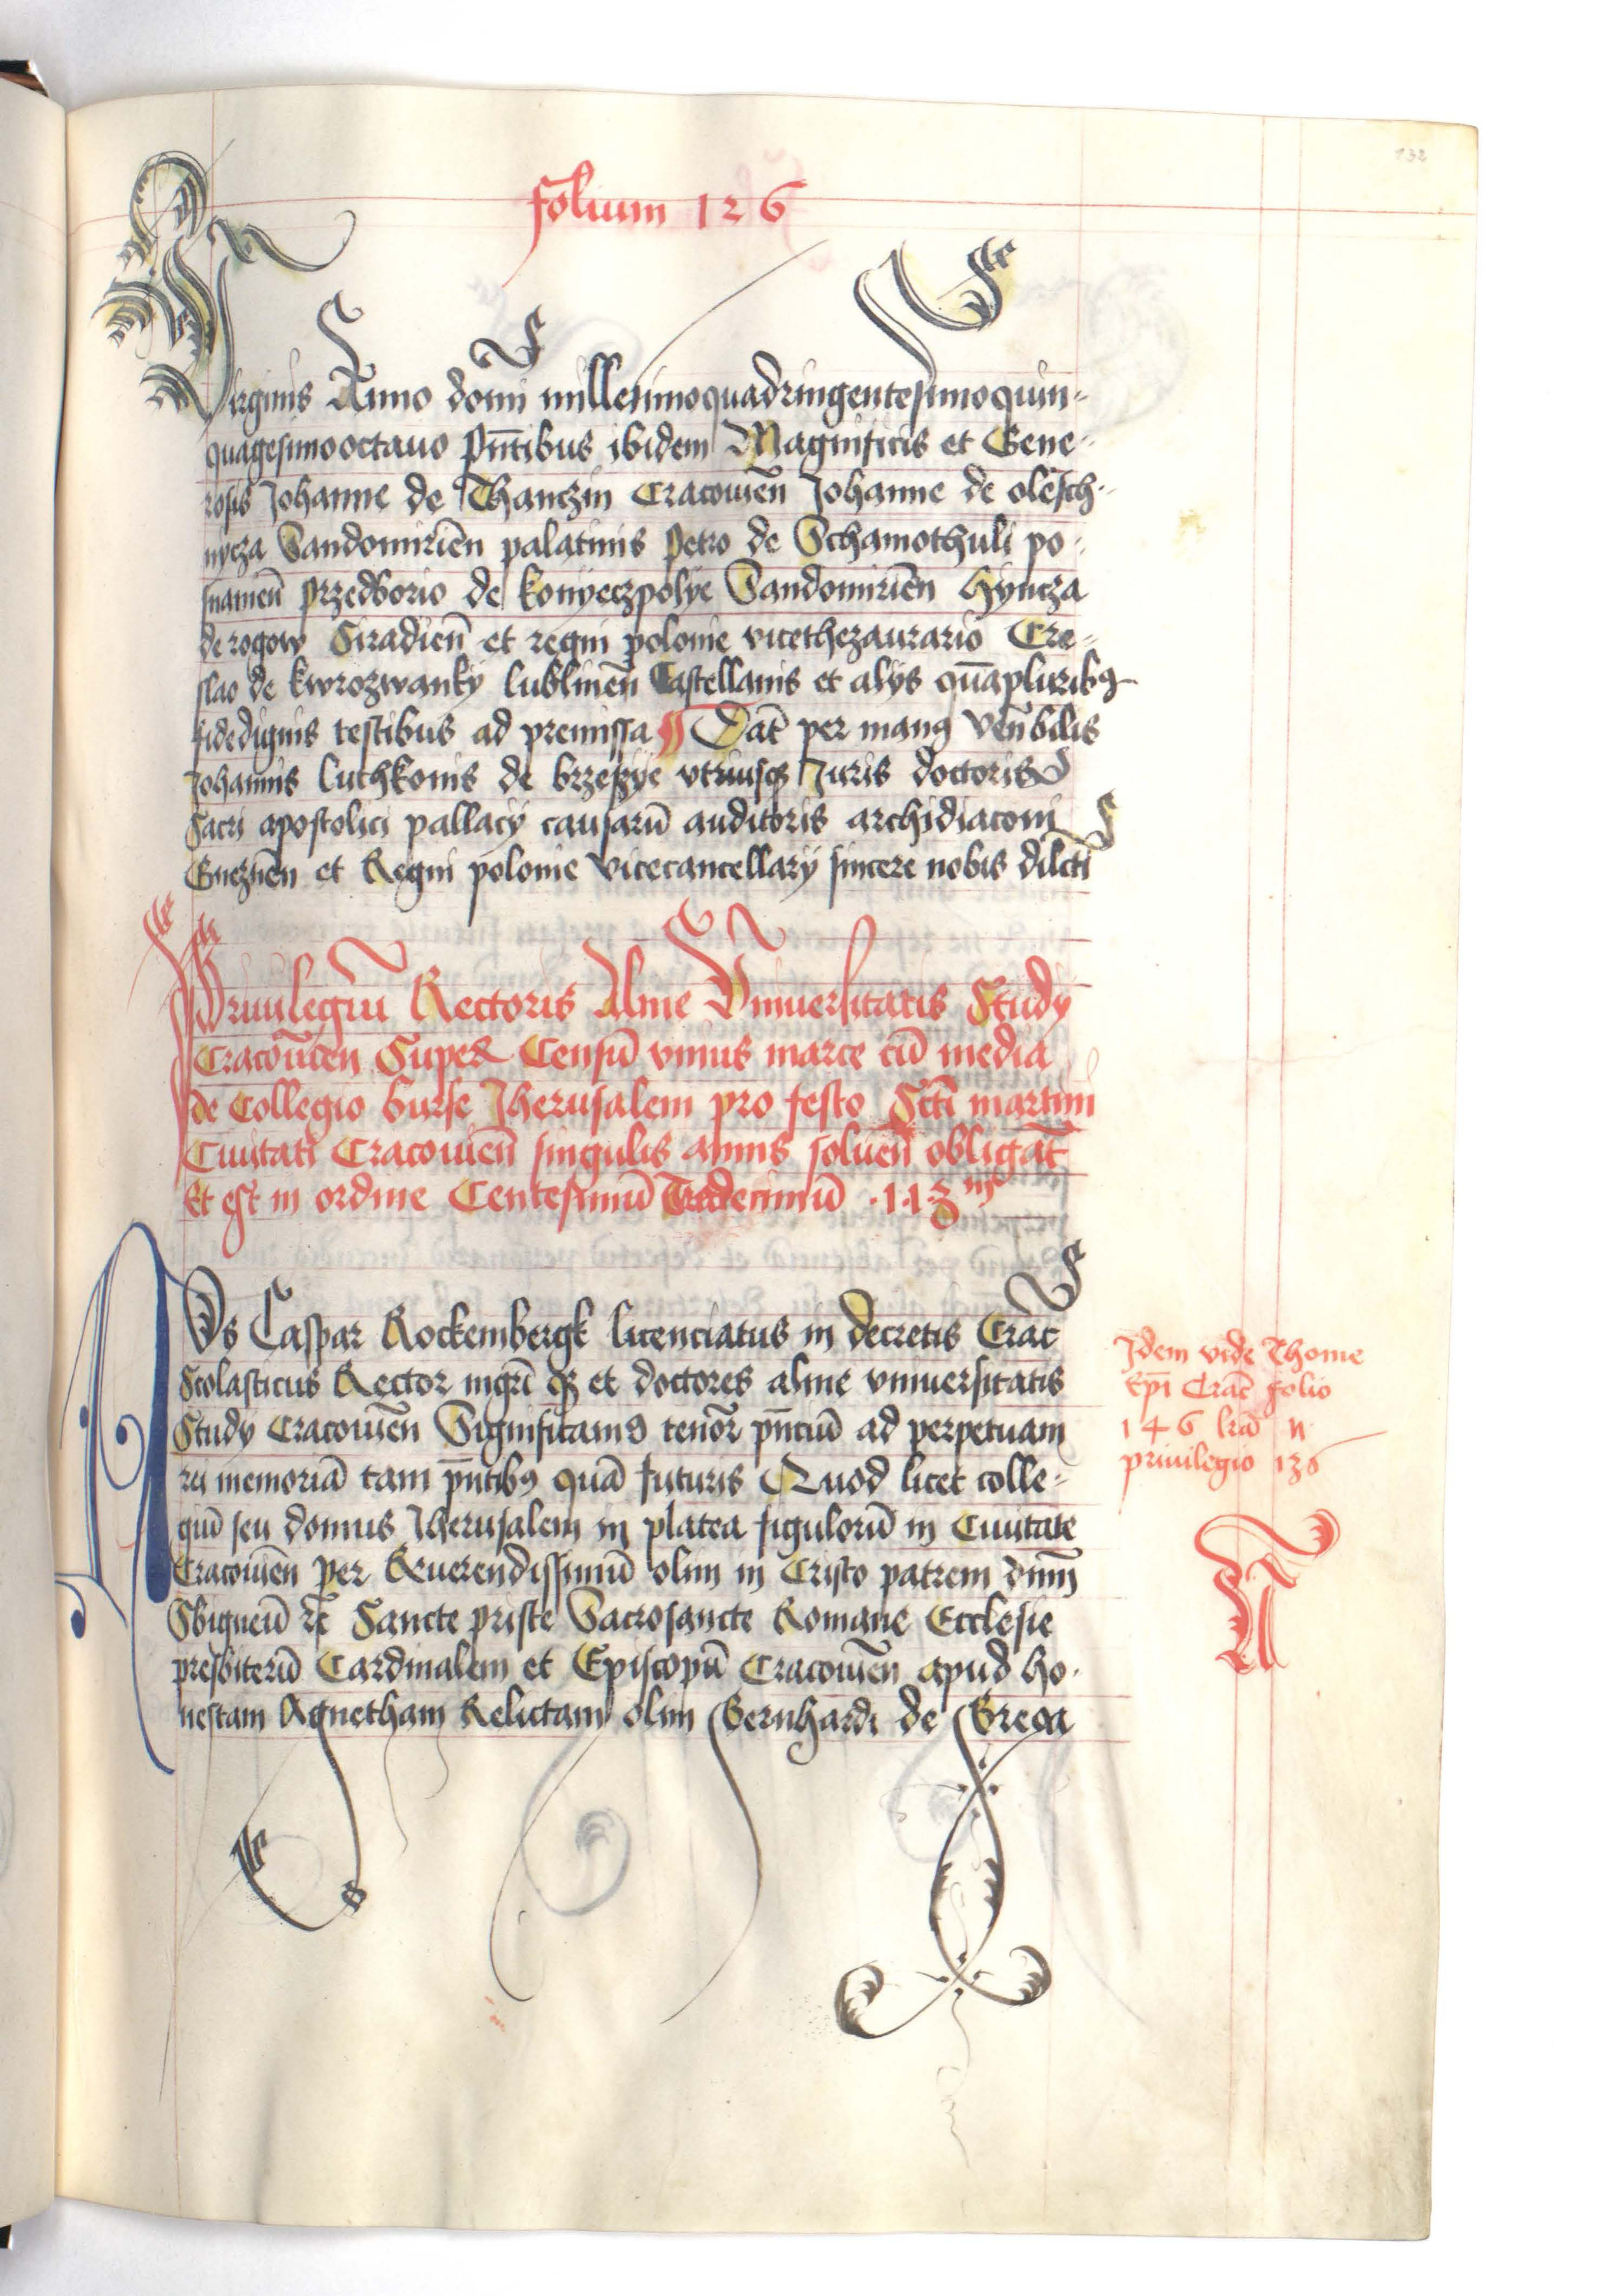 folium 126
132
Virginis Anno domi millesimoquadringentesimoquin-
quagesimooctauo Pñtibus ibidem Magnificis et Gene-
rosis Johanne de Thanczin Cracouien̄ Johanne de olesch-
nycza Sandomirien̄ palatinis Petro de Schamothuli po-
snanien̄ przedborio de konyeczpolye Sandomirien̄ Hyncza
de rogow Siradien̄ et regni polonie vicethezaurario Cre-
slao de kwrozwanky lublinen̄ Castellanis et alijs quāpluribꝫ
fidedignis testibus ad premissa ¶ Dat̄ per manꝰ Ven̄bilis
Johannis luthkonis de brzeszye vtriusqꝫ Juris doctoris
Sacri apostolici pallacij causarū auditoris archidiaconi
Gneznen̄ et Regni polonie vicecancellarij sincere nobis dilcti
Priuilegiū Rectoris Alme Vniuersitatis Study
Cracouien̄ Super Censū vnius marce cū media
de Collegio burse Jherusalem pro festo Scti martini
Ciuitati Cracouien̄ singulis annis soluen̄ obligat̄
Et est in ordine Centesimū Tredecimū .113
NOs Caspar Rockembergk licenciatus in decretis Crac̄
Scolasticus Rector mgri qꝫ et doctores alme vniuersitatis
Study Cracouien̄ Significamꝰ tenor̄ pñciū ad perpetuam
rei memoriā tam pñtibꝫ quā futuris Quod licet colle-
giū seu domus Jherusalem in platea figulorū in Ciuitate
Cracouien̄ per Reuerendissimū olim in Cristo patrem dnm̄
Sbigneū tt̄ Sancte priste Sacrosancte Romane Ecclesie
presbiterū Cardinalem et Episcopū Cracouien̄ apud ho-
nestam Agnetham Relictam olim Bernhardi de Brega
Idem vide Thome
Ep̄i Crac̄ folio
146 lrā N
priuilegio 136